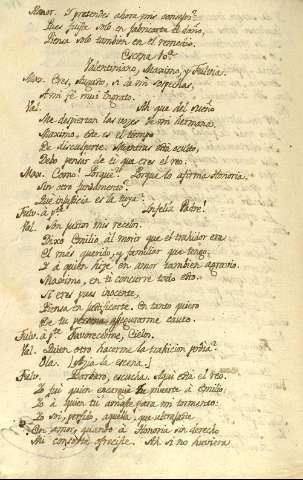 Honor. Y pretendes ahora mis consejos?
Pues fuiste solo en fabricarte el daño,
Piensa solo tambien en el remedio.
Escena 10ª
Valentiniano, Maximo, y Fulvia.
Max. Cesar, seguro, si à mi sospechas,
A mi fè mui ingrato.
Val. Ah que del sueño
Me despiertan las vozes de mi hermana.
Maximo, este es el tiempo
De disculparte. Mientras està oculto,
Debo pensar de ti que eres el reo.
Max. Como! Porquè? Porque lo afirma Honoria
Sin otro fundamento?
Que injusticia es la tuya?
Fulv. à pte. Infeliz Padre!
Val. Son justos mis recelos.
Dixo Emilio al morir que el trahidor era
El mas querido, y familiar que tengo;
Y à quien hize en amor tambien agravio.
Maximo, en ti concurre todo esto.
Si eres pues inocente,
Piensa en justificarte. En tanto quiero
De tu persona asegurarme cauto.
Fulv. à pte. Favorecedme, Cielos.
Val. Quien otro hacerme la trahicion podia?
Ola.
Fulv. Barbaro, escucha. Aqui està el reo.
Yo fui quien encarguè la muerte à Emilio;
Yo à quien tu amaste para mi tormento:
Yo soi, perfido, aquella, que ultrajaste
En amor, quando à Honoria sin derecho
Mi consorte ofreciste. Ah si no huviera